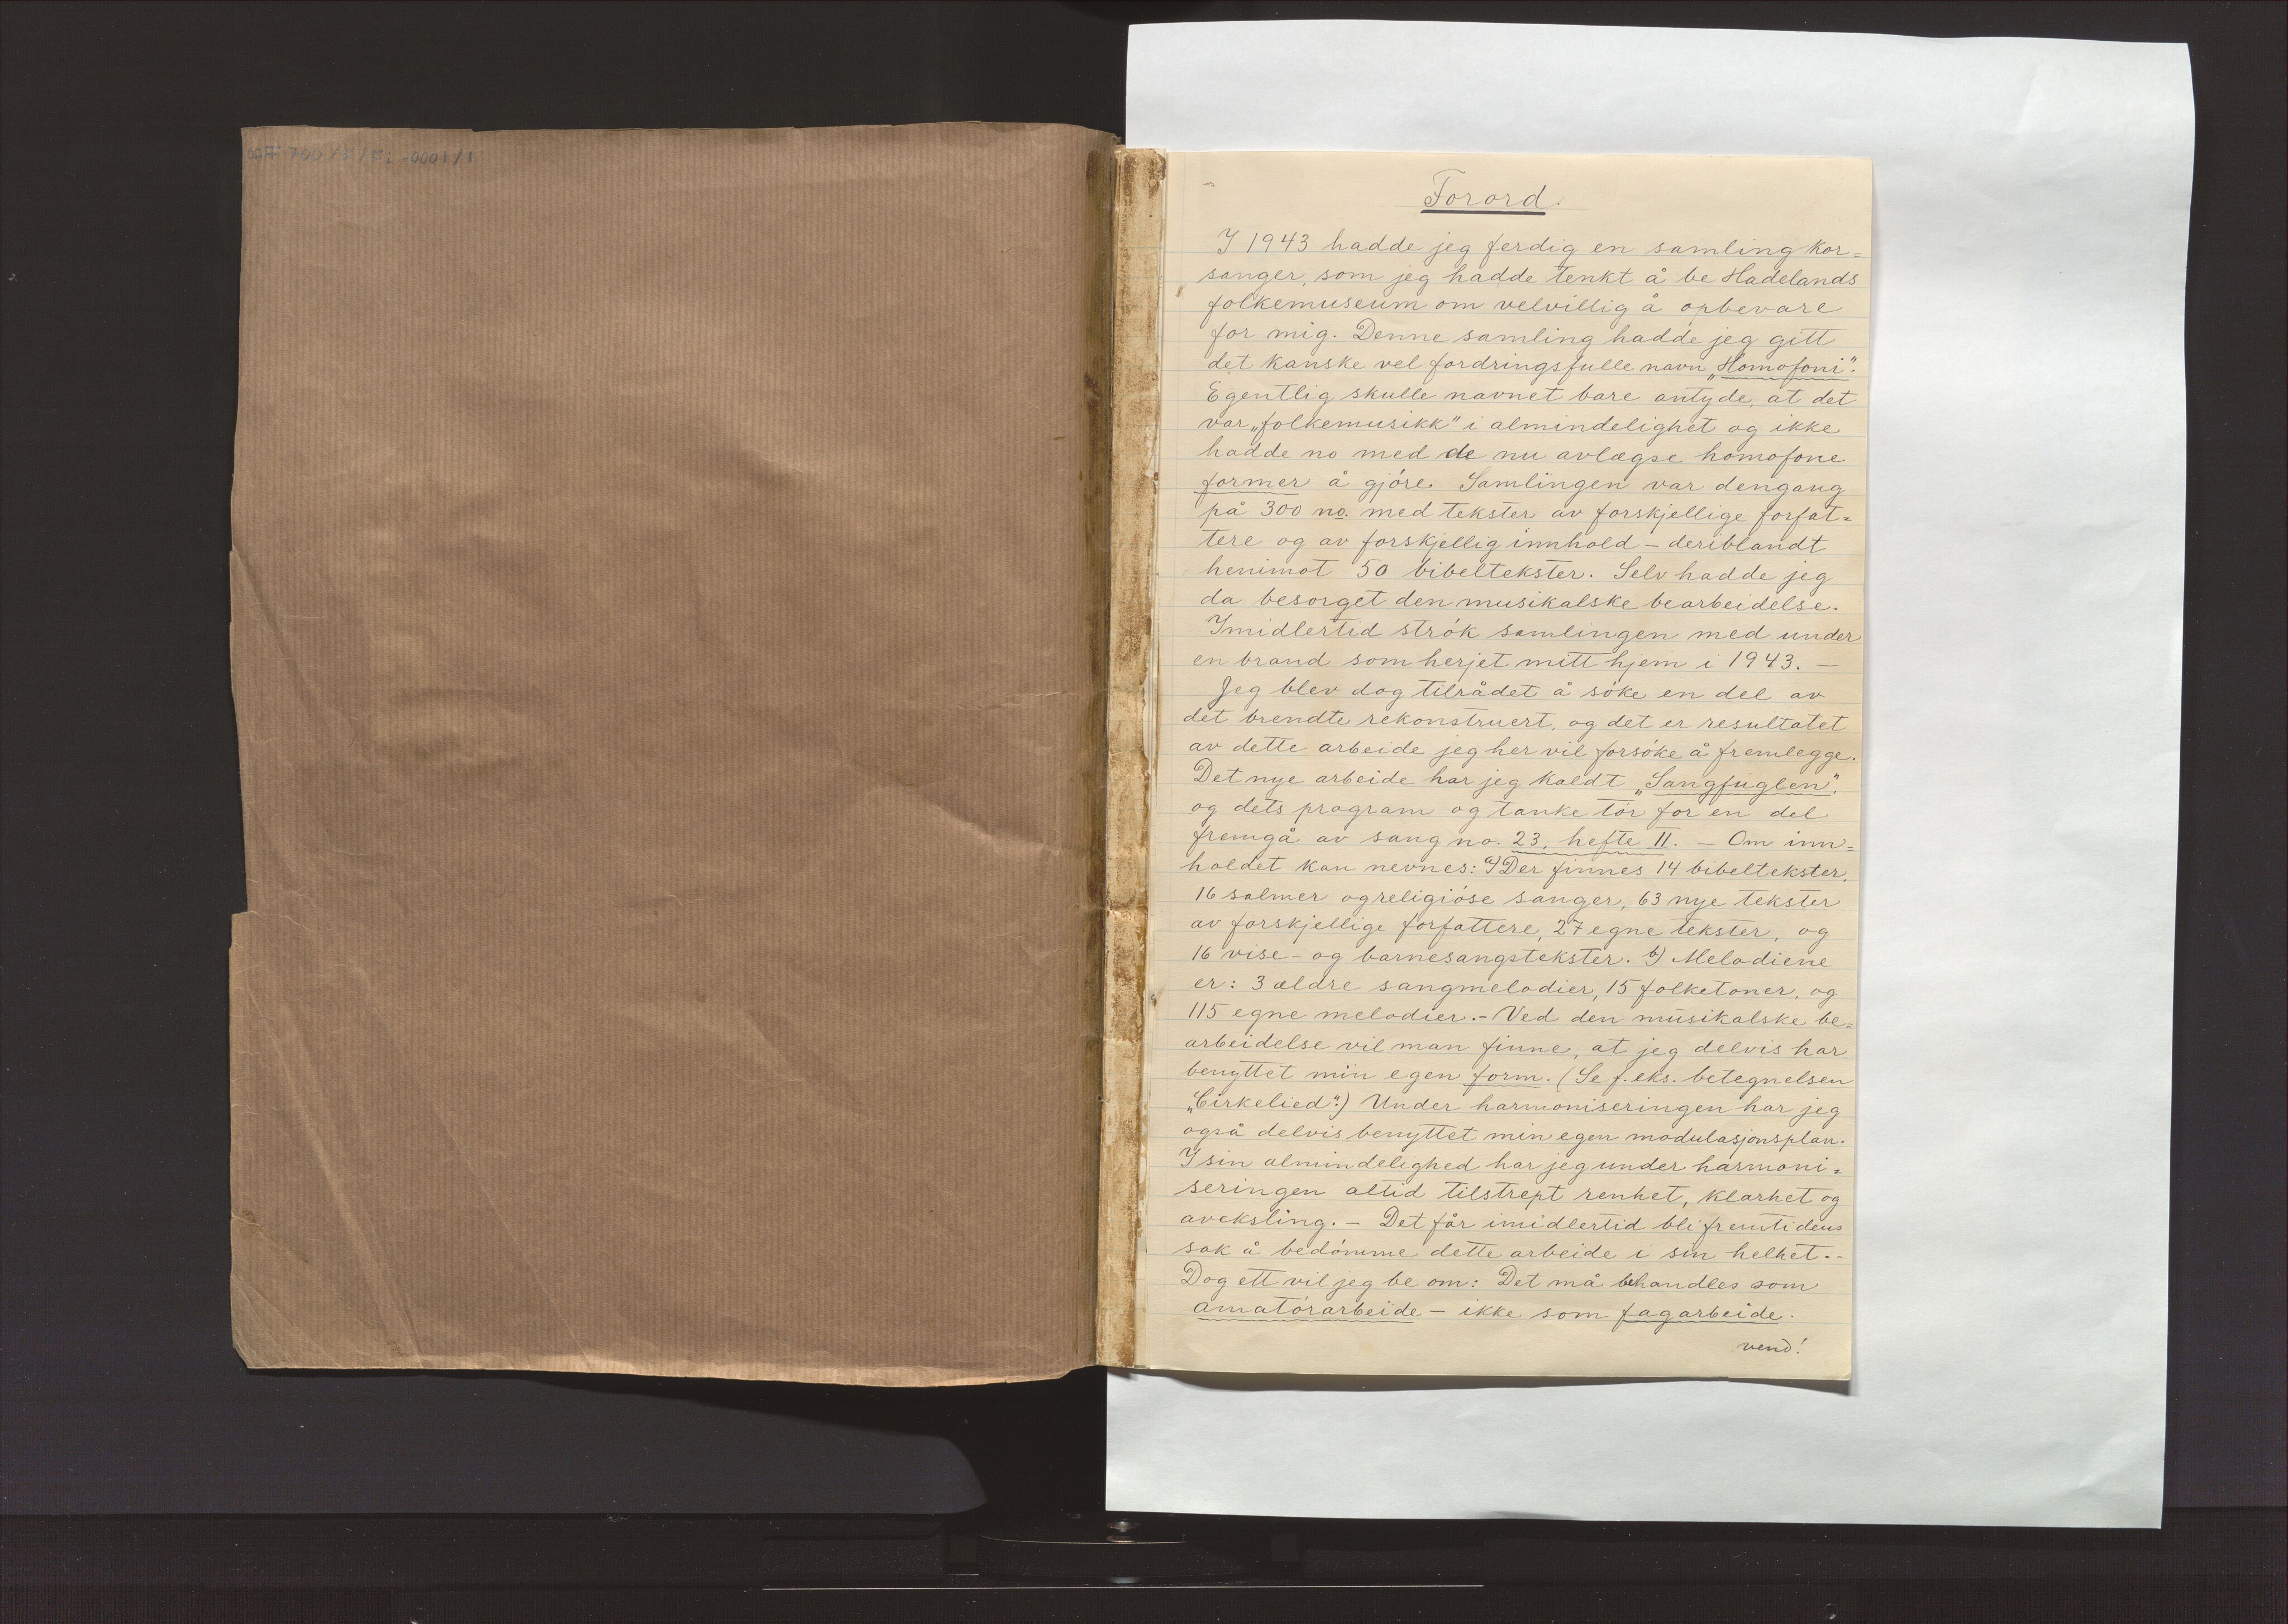 Forord.
I 1943 hadde jeg ferdig en samling kor=
sanger, som jeg hadde tenkt å be Hadelands
folkemuseum om velvillig å opbevare
for mig. Denne samling hadde jeg gitt
det kanske vel fordringsfulle navn „Homofoni".
Egentlig skulle navnet bare antyde, at det
var „folkemusikk" i almindelighet og ikke
hadde no med de nu avlægse homofone
former å gjóre. Samlingen var dengang
på 300 no. med tekster av forskjellige forfat=
tere og av forskjellig innhold – deriblandt
henimot 50 bibeltekster. Selv hadde jeg
da besorget den musikalske bearbeidelse.
Imidlertid strók samlingen med under
en brand som herjet mitt hjem i 1943. –
Jeg blev dog tilrådet å sóke en del av
det brendte rekonstruert, og det er resultatet
av dette arbeide jeg her vil forsóke å fremlegge.
Det nye arbeide har jeg kaldt „Sangfuglen",
og dets program og tanke tór for en del
fremgå av sang no. 23, hefte II. – Om inn=
holdet kan nevnes: a) Der finnes 14 bibeltekster,
16 salmer og religióse sanger, 63 nye tekster
av forskjellige forfattere, 27 egne tekster, og
16 vise- og barnesangstekster. b) Melodiene
er: 3 ældre sangmelodier, 15 folketoner, og
115 egne melodier. – Ved den musikalske be=
arbeidelse vil man finne, at jeg delvis har
benyttet min egen form. (Se f.eks. betegnelsen
„Cirkelied".) Under harmoniseringen har jeg
også delvis benyttet min egen modulasjonsplan.
I sin almindelighed har jeg under harmoni=
seringen altid tilstrept renhet, klarhet og
aveksling. – Det får imidlertid bli fremtidens
sak å bedómme dette arbeide i sin helhet. –
Dog ett vil jeg be om: Det må behandles som
amatórarbeide – ikke som fagarbeide.
vend!